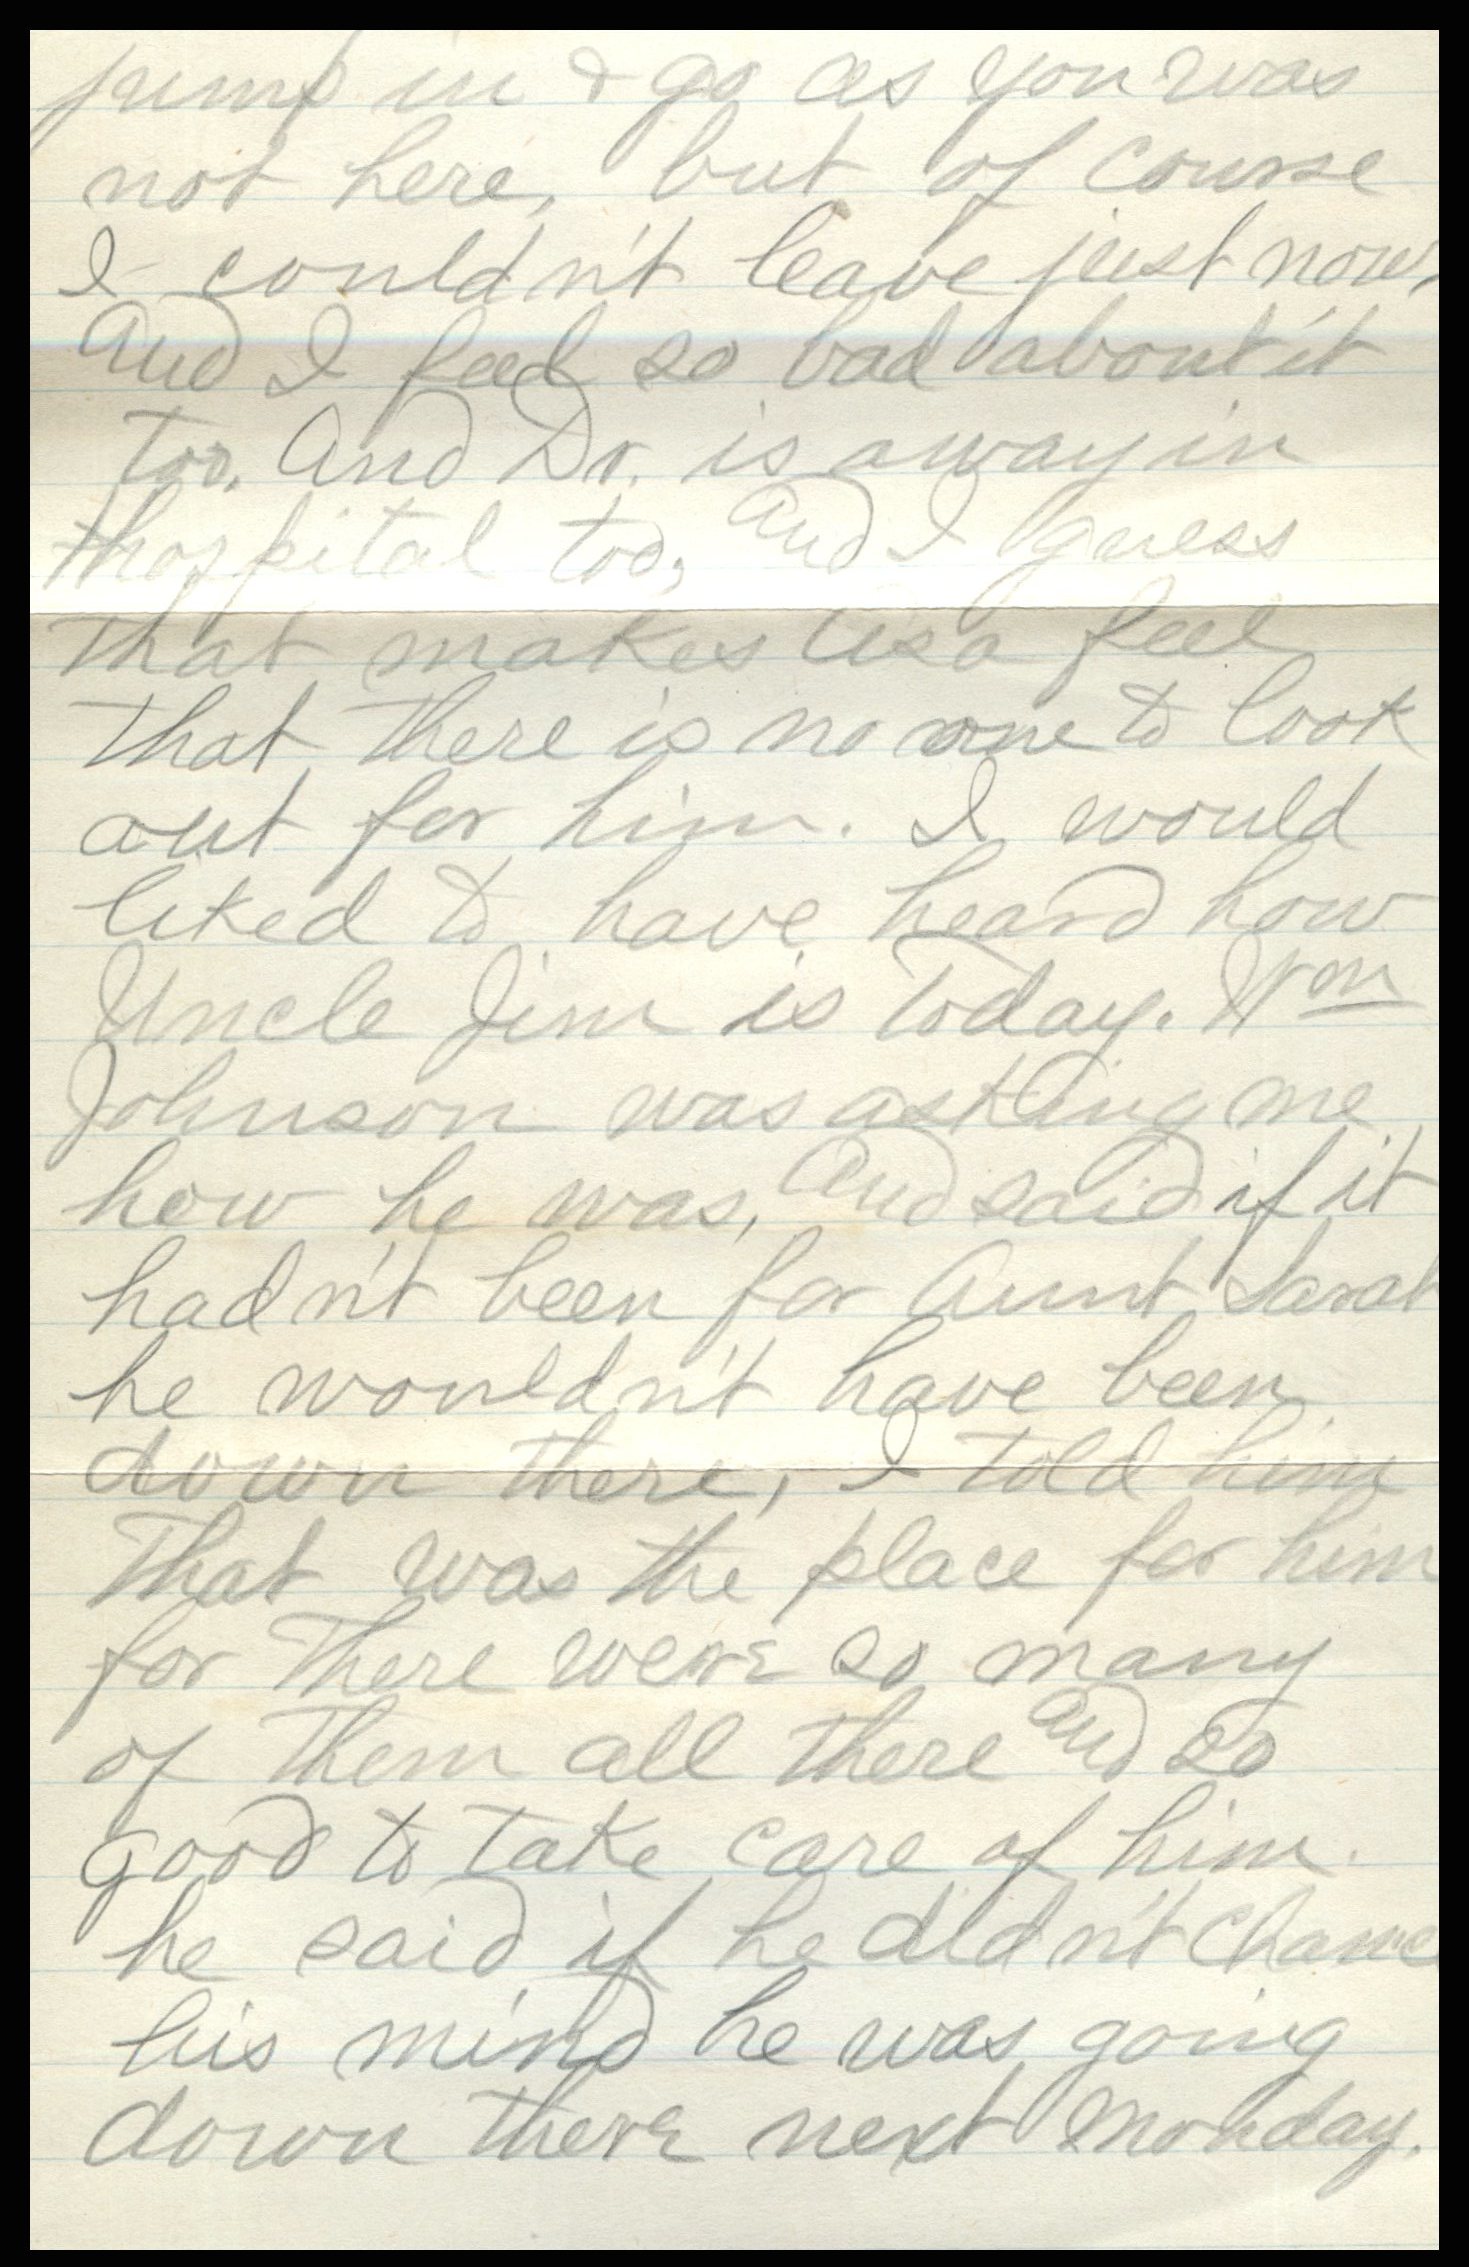 jump in & go as you was
not here, but of course
I couldn't leave just now,
and I feel so bad about it
too. And Dr. is away in
thospital too, and I guess
that makes Asa feel
that there is no one to look
out for him. I would
liked to have heard how
Uncle Jim is today. Wm
Johnson was asking me
how he was, and said if it
hadn't been for Aunt Sarah
he wouldn't have been
down there, I told him
that was the place for him
for there were so many
of them all there and so
good to take care of him.
he said if he didn't change
his mind he was going
down there next Monday.